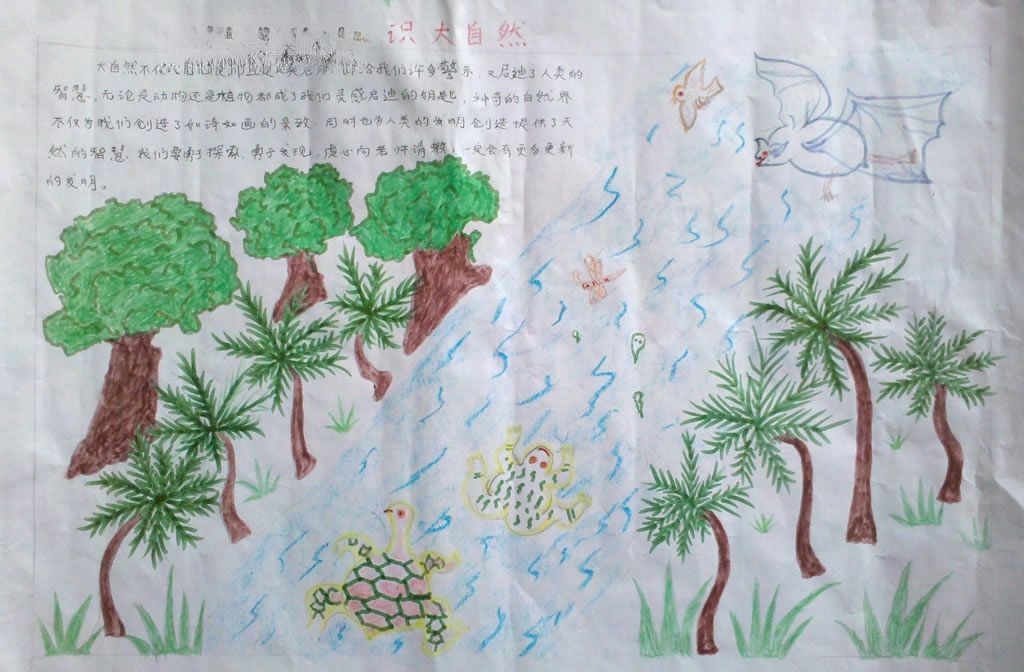 识大自然
大自然不仅 给我们许多警示,又启迪了人类的
智慧,无论是动物还是植物都成了我们灵感启迪的钥匙,神奇的自然界
不仅为我们创造了如诗如画的景致.同时也为人类的发明创造提供了天
然的智慧.我们要勇于探索、勇于发现,虚心向老师请教,一定会有更多更新
的发明。